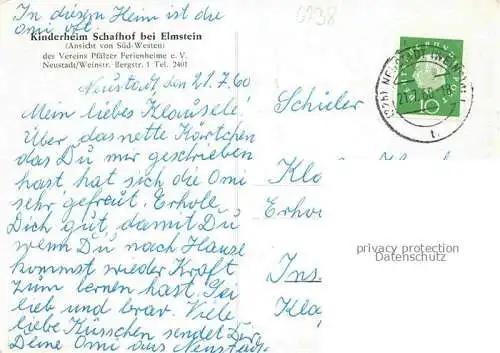 In diesem Heim ist die
Omi oft.
6738
Kinderheim Schafhof bei Elmstein
(Ansicht von Süd-Westen)
des Vereins Pfälzer Ferienheime e. V.
Neustadt/Weinstr. Bergstr. 1 Tel. 2401
Neustadt den 21.7.60
Mein liebes Klausele!
Über das nette Kärtchen
das Du mir geschrieben
hast, hat sich die Omi
sehr gefreut. Erhole
Dich gut, damit Du
wenn Du nach Hause
kommst wieder Kraft
zum lernen hast. Sei
lieb und brav. Viele
liebe Küsschen sendet Dir
Deine Omi aus Neustadt
10
Schüler
Kla
Erho
Ins
Kla
privacy protection
Datenschutz